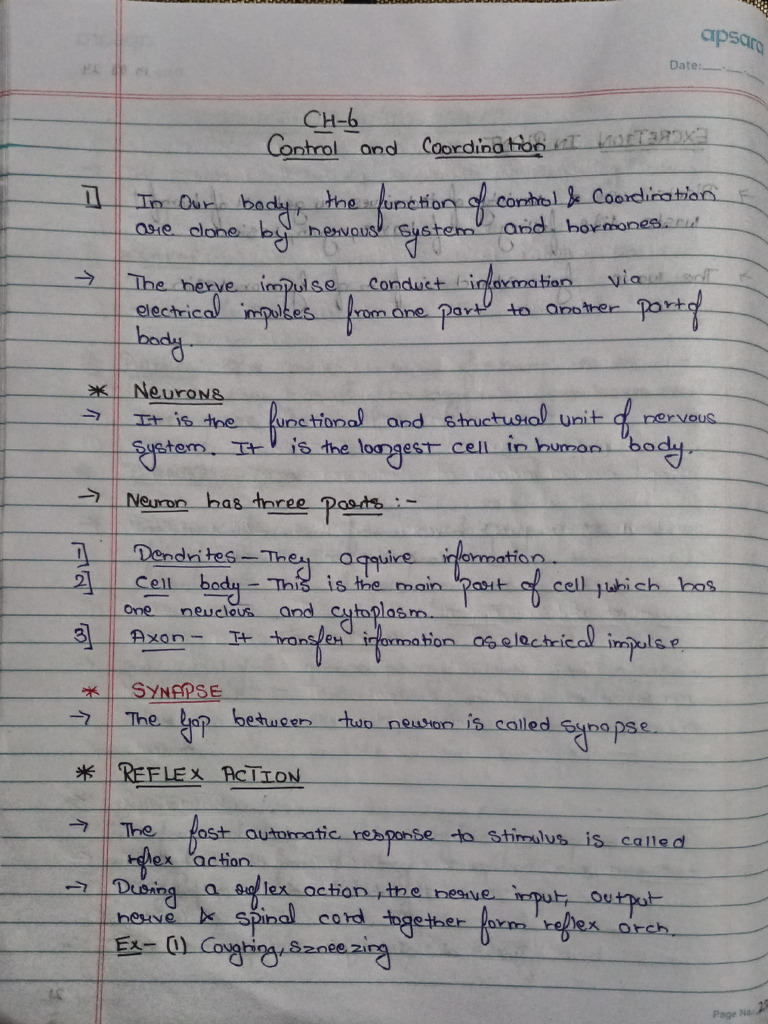 apsara
Date:
CH-6
Control and Coordination
1] In Our body, the function of control & Coordination
are done by nervous system and hormones.
→ The nerve impulse conduct information via
electrical impulses from one part to another part of
body.
* Neurons
→ It is the functional and structural unit of nervous
system. It is the longest cell in human body.
→ Neuron has three parts :-
1] Dendrites – They aqquire information.
2] Cell body – This is the main part of cell, which has
one neucleus and cytoplasm.
3] Axon – It transfer information as electrical impulse.
* SYNAPSE
→ The Gap between two neuron is called synapse.
* REFLEX ACTION
→ The fast automatic response to stimulus is called
reflex action.
→ During a reflex action, the nerve input, output
nerve & spinal cord together form reflex arch.
Ex– (1) Coughing, szneezing
Page No.: